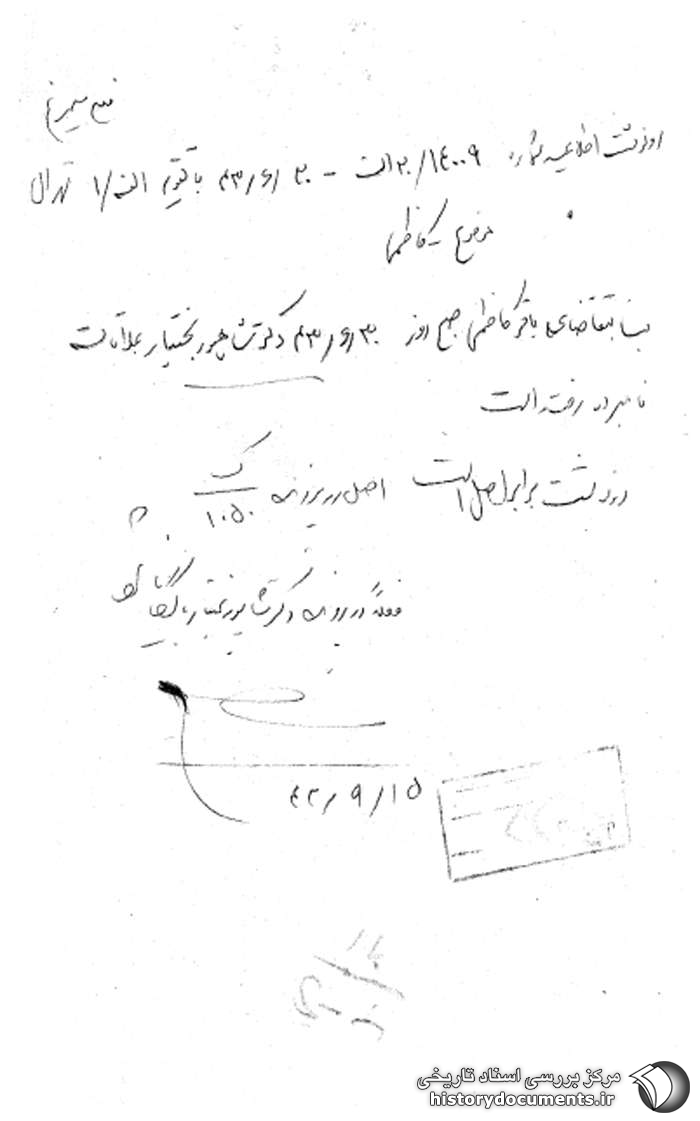 رونوشت اطلاعیه شماره ۱۴۰۰۹/۳۰الف - ۴۳/۶/۳۰ با تقویم الف/۱ تهران
موضوع - کاظمی
بنا بتقاضای باقر کاظمی صبح روز ۴۳/۶/۳۰ دکتر شاهپور بختیار بملاقات
نامبرده رفته است
رونوشت برابر اصل است اصل در پرونده ک/۱۰۵۰
فعلاً در پرونده دکتر شاپور بختیار
۴۳/۹/۱۵
مرکز بررسی اسناد تاریخی
historydocuments.ir